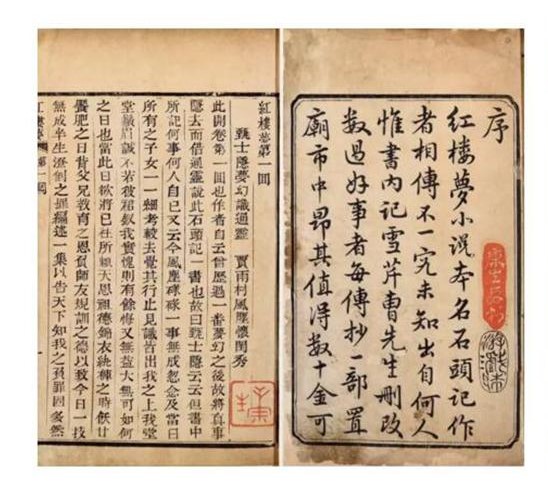 序
紅樓夢小説本名石頭記作
者相傳不一究未知出自何人
惟書内記雪芹曹先生刪改
数過好事者每傳抄一部置
廟市中昂其值得数十金可
紅樓夢第一回
甄士隱夢幻識通靈 賈雨村風塵懷閨秀
此開卷第一回也作者自云曾歷過一番夢幻之後故將真事
隱去而借通靈說此石頭記一書也故曰甄士隱云云但書中
所記何事何人自己又云今風塵碌碌一事無成忽念及當日
所有之子女一一細考較去覺其行止見識皆出我之上我堂
堂鬚眉誠不若彼裙釵我實愧則有餘悔又無益大無可如何
之日也當此日欲將已往所賴天恩祖德錦衣紈袴之時飫甘
饜肥之日背父兄教育之恩負師友規訓之德以致今日一技
無成半生潦倒之罪編述一集以告天下知我之負罪固多然
紅樓夢 第一回 一